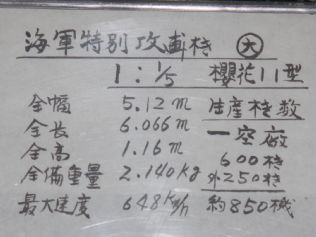 海軍特別攻撃機 大
1:1/5 櫻花11型
全幅 5.12m 生産機数
全長 6.066m 一空廠
全高 1.16m 600機
全備重量 2.140kg 外250機
最大速度 648km/h 約850機